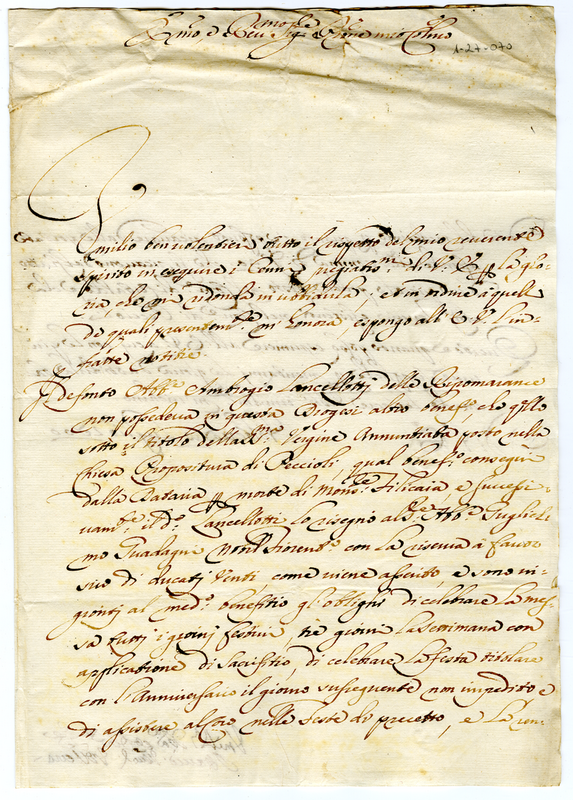 Emo e Rev Sig e Prone mio Colmo
1-27-070
Umilio ben volentieri tutto il rispetto del mio reverente
spirito in eseguire i Cenni pregiatmi di V. E. la glo-
ria, che mi ridonda in ubbidirla; et in ordine à quelli
de quali presentemte mi honora, espongo all' E. V. l'in-
fratte notizie.
Il defonto Abbe Ambrogio Lancellotti delle Ripomarance
non possedeva in questa Diogesi altro benefo che qllo
sotto il titolo della SSma Vergine Annuntiata posto nella
Chiesa Propositura di Peccioli, qual benefo conseguì
dalla Dataria p morte di Monsre Filicaia e successi-
vamte il do Lancellotti lo risegnò al Sre Abbe Guglie-
mo Guadagni Nobl Fiorentno con la riserva à favor
suo di ducati Venti, come viene asserito, e sono in-
gionti al medo benefitio gl' oblighi di celebrare la mes-
sa tutti i giorni festivi, tre giorni la settimana con
applicatione di Sacrifitio, di celebrare la festa titolare
con l'Anniversario il giorno susseguente non impedito e
di assistere al Coro nelle feste di precetto, e la ren-